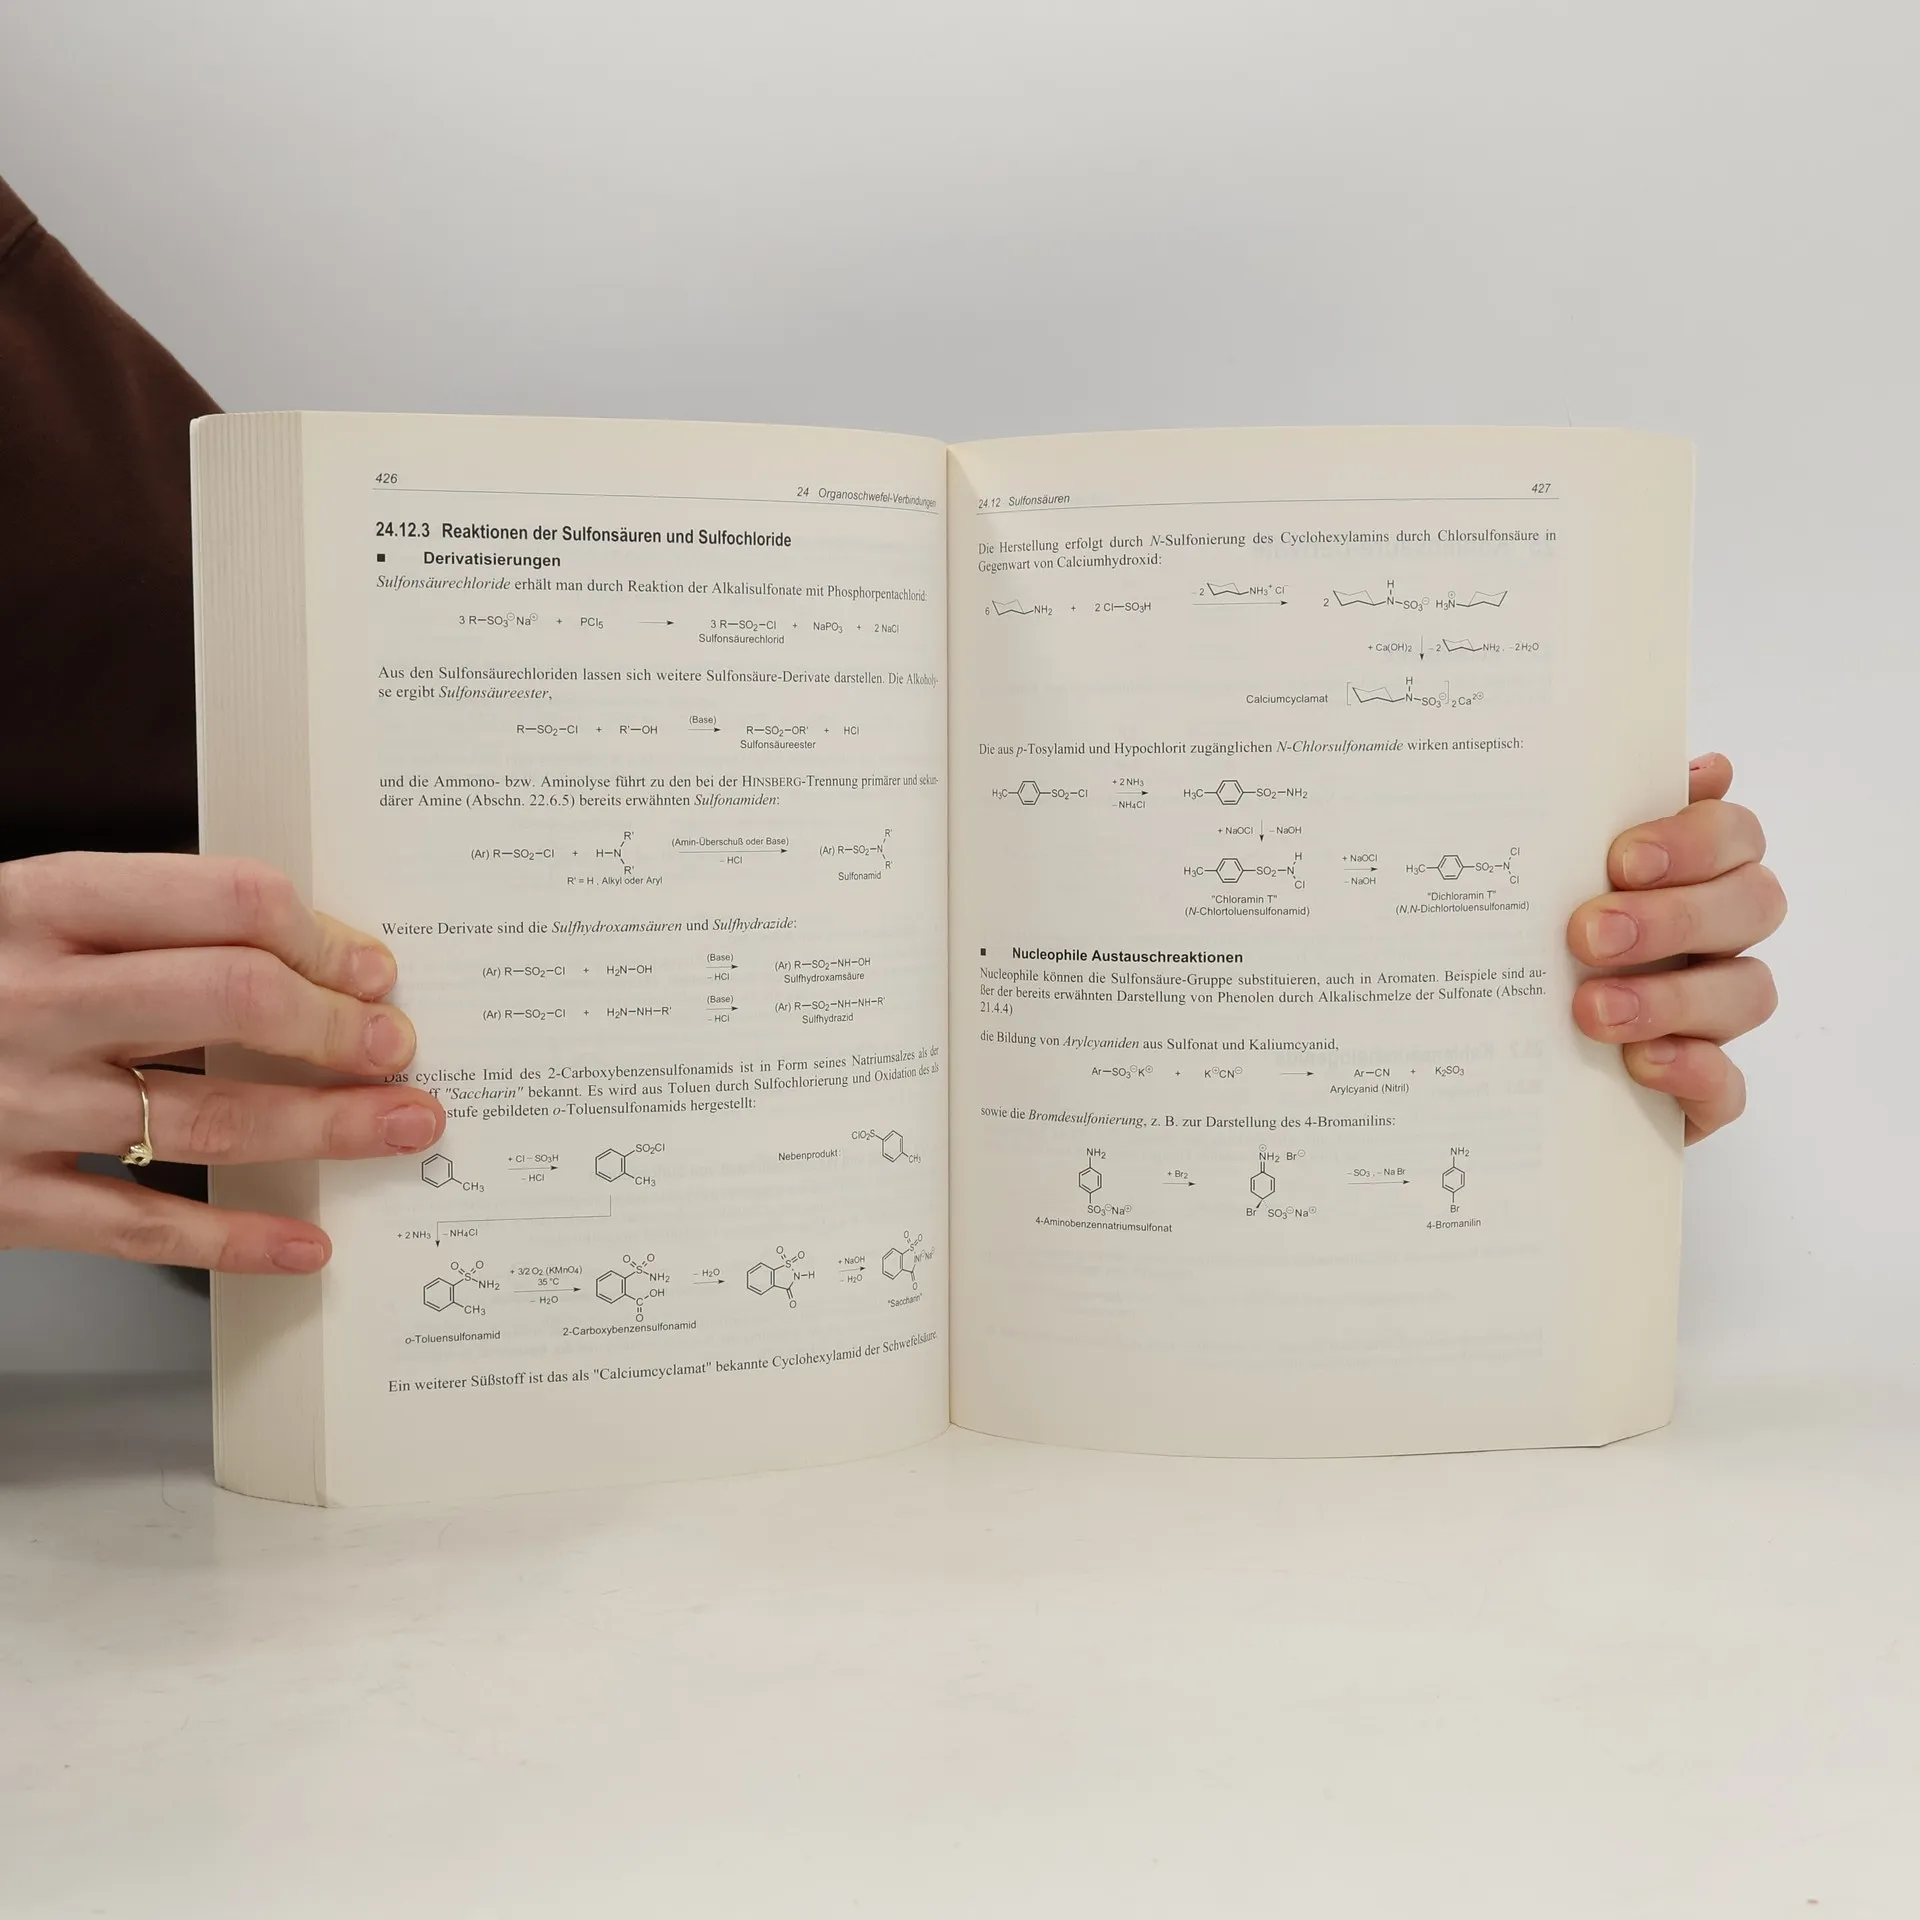 426
24 Organoschwefel-Verbindungen
24.12.3 Reaktionen der Sulfonsäuren und Sulfochloride
■ Derivatisierungen
Sulfonsäurechloride erhält man durch Reaktion der Alkalisulfonate mit Phosphorpentachlorid:
3 R—SO₃⊖Na⊕ + PCl₅ → 3 R—SO₂—Cl + NaPO₃ + 2 NaCl
Sulfonsäurechlorid
Aus den Sulfonsäurechloriden lassen sich weitere Sulfonsäure-Derivate darstellen. Die Alkoholy-
se ergibt Sulfonsäureester,
(Base)
R—SO₂—Cl + R'—OH → R—SO₂—OR' + HCl
Sulfonsäureester
und die Ammono- bzw. Aminolyse führt zu den bei der HINSBERG-Trennung primärer und sekun-
därer Amine (Abschn. 22.6.5) bereits erwähnten Sulfonamiden:
R' R'
(Amin-Überschuß oder Base)
(Ar) R—SO₂—Cl + H—N → (Ar) R—SO₂—N
– HCl
R' R'
R' = H , Alkyl oder Aryl Sulfonamid
Weitere Derivate sind die Sulfhydroxamsäuren und Sulfhydrazide:
(Base)
(Ar) R—SO₂—Cl + H₂N—OH → (Ar) R—SO₂—NH—OH
– HCl Sulfhydroxamsäure
(Base)
(Ar) R—SO₂—Cl + H₂N—NH—R' → (Ar) R—SO₂—NH—NH—R'
– HCl Sulfhydrazid
Das cyclische Imid des 2-Carboxybenzensulfonamids ist in Form seines Natriumsalzes als der
"Saccharin" bekannt. Es wird aus Toluen durch Sulfochlorierung und Oxidation des als
stufe gebildeten o-Toluensulfonamids hergestellt:
CH₃ + Cl – SO₃H – HCl SO₂Cl CH₃ Nebenprodukt: ClO₂S CH₃
+ 2 NH₃ – NH₄Cl
O O S NH₂ CH₃ + 3/2 O₂ (KMnO₄) 35 °C – H₂O O O S NH₂ C OH O – H₂O O O S N—H O + NaOH – H₂O O O S N⊖Na⊕ O
"Saccharin"
o-Toluensulfonamid 2-Carboxybenzensulfonamid
Ein weiterer Süßstoff ist das als "Calciumcyclamat" bekannte Cyclohexylamid der Schwefelsäure.
24.12 Sulfonsäuren 427
Die Herstellung erfolgt durch N-Sulfonierung des Cyclohexylamins durch Chlorsulfonsäure in
Gegenwart von Calciumhydroxid:
6 NH₂ + 2 Cl—SO₃H – 2 NH₃⁺ Cl⁻ → 2 H N—SO₃⊖ H₃N⊕
+ Ca(OH)₂ – 2 NH₂ , – 2 H₂O
Calciumcyclamat [ H N—SO₃⊖ ]₂ Ca²⊕
Die aus p-Tosylamid und Hypochlorit zugänglichen N-Chlorsulfonamide wirken antiseptisch:
H₃C SO₂—Cl + 2 NH₃ – NH₄Cl → H₃C SO₂—NH₂
+ NaOCl – NaOH
H₃C SO₂—N H Cl + NaOCl – NaOH → H₃C SO₂—N Cl Cl
"Chloramin T" "Dichloramin T"
(N-Chlortoluensulfonamid) (N,N-Dichlortoluensulfonamid)
■ Nucleophile Austauschreaktionen
Nucleophile können die Sulfonsäure-Gruppe substituieren, auch in Aromaten. Beispiele sind au-
ßer der bereits erwähnten Darstellung von Phenolen durch Alkalischmelze der Sulfonate (Abschn.
21.4.4)
die Bildung von Arylcyaniden aus Sulfonat und Kaliumcyanid,
Ar—SO₃⊖K⊕ + K⊕CN⊖ → Ar—CN + K₂SO₃
Arylcyanid (Nitril)
sowie die Bromdesulfonierung, z. B. zur Darstellung des 4-Bromanilins:
NH₂ ⊕NH₂ Br⊖ NH₂
+ Br₂ → – SO₃ , – Na Br →
SO₃⊖Na⊕ Br SO₃⊖Na⊕ Br
4-Aminobenzennatriumsulfonat 4-Bromanilin